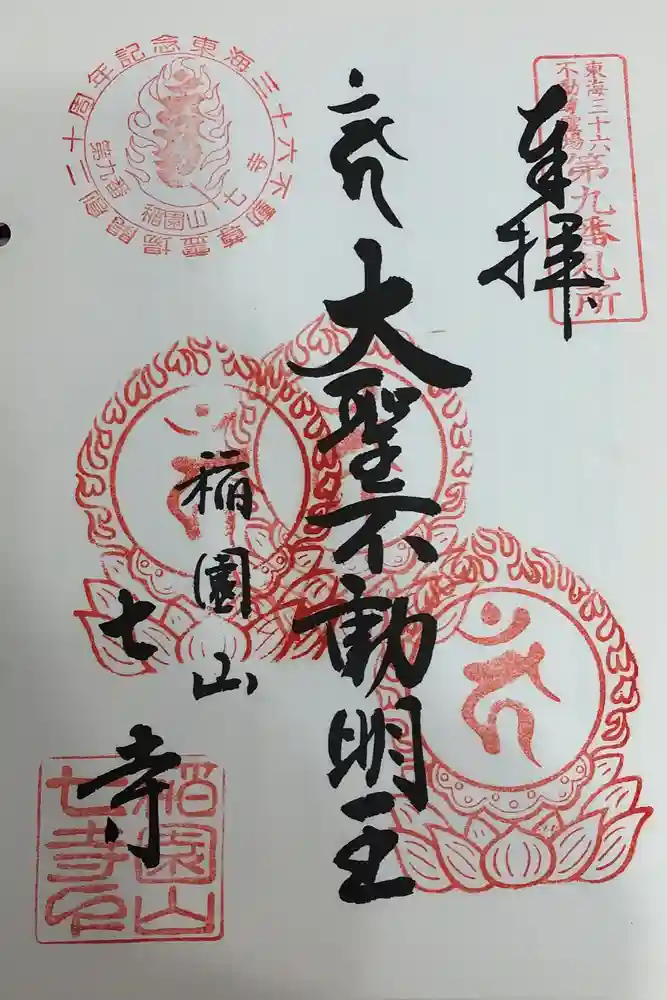 東海三十六
不動尊霊場
第九番札所
奉拝
大聖不動明王
稲園山
七寺
東海三十六不動尊霊場開創二十周年記念
第九番
稲園山
七寺
稲園山
七寺印